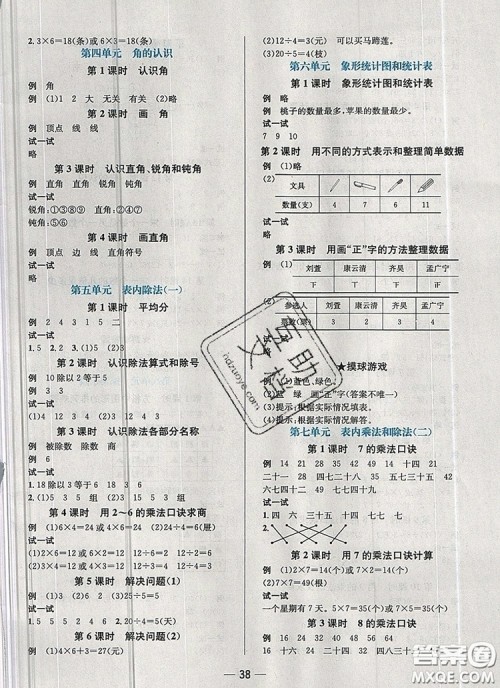 2. 3×6=18(条)或 6×3=18(条)
第四单元 角的认识
第 1 课时 认识角
例 角
例 (1)1 2 大 无关 有关 (2)略
第 2 课时 画 角
例 顶点 线 线
试一试
略
第 3 课时 认识直角、锐角和钝角
例 直角 直角 锐角 钝角
试一试
锐角:①③⑧⑨ 直角:②④⑦
钝角:⑤⑥
第 4 课时 画直角
例 顶点 边 线 直角符号
试一试
略
第五单元 表内除法(一)
第 1 课时 平均分
例 2 4 3 1 5 二
试一试
1. 5 2. 2 3. (1)5 (2)3
第 2 课时 认识除法算式和除号
例 10 除以 2 等于 5
试一试
1. 18 3 6 2. 略
第 3 课时 认识除法各部分名称
例 被除数 除数 商
试一试
1. 15 3 5 组 (2)15 5 3 组
第 4 课时 用 2~6 的乘法口诀求商
例 (1)6×4=24 或 4×6=24 (2)24÷4=6(层)
试一试
(1)2×6=12 或 6×2=12 12÷6=2 12÷2=6
(2)5×6=30 或 6×5=30 30÷6=5 30÷5=6
第 5 课时 解决问题(1)
例 (1)2 3 (2)3 (3)25÷5=5
试一试
1. 3 2. 20÷5=4(天)
第 6 课时 解决问题(2)
例 (1)4×6+3=27(元)
(2)12÷4=3(元) 可以买马蹄莲。
(3)20÷5=4(枝)
第六单元 象形统计图和统计表
第 1 课时 象形统计图和统计表
例 略
例 桃子的数量最多,苹果的数量最少。
试一试
7 9 10
第 2 课时 用不同的方式表示和整理简单数据
例 (1)略
(2)
文具
数量(支) 4 7 6 11
第 3 课时 用画“正”字的方法整理数据
例 (1) 刘萱 康云清 齐昊 孟广宁
(2) 参选人 刘萱 康云清 齐昊 孟广宁
票数(票) 3 2 3 4
★摸球游戏
例 (1)蓝色、绿色。
(2)蓝 绿 画“正”字(答案不唯一)
(3)提示:根据实际情况填表。
(4)提示:根据实际情况解答。
第七单元 表内乘法和除法(二)
第 1 课时 7 的乘法口诀
例 14 21 28 35 42 49 一七 十四 四七
二十一 28 四七二十八 35 五七三十五 42
六七四十二 49 七七四十九
试一试
1. 四 五 二 十四 六 七
2.
第 2 课时 用 7 的乘法口诀计算
例 (1)7×2=14(个)或 2×7=14(个)
试一试
一个星期有 7 天。5×7=35(天)或 7×5=35(天)
例 (2)7×7=49(棵)
第 3 课时 8 的乘法口诀
例 16 24 32 40 48 56 64
一八 十六 二十四
38